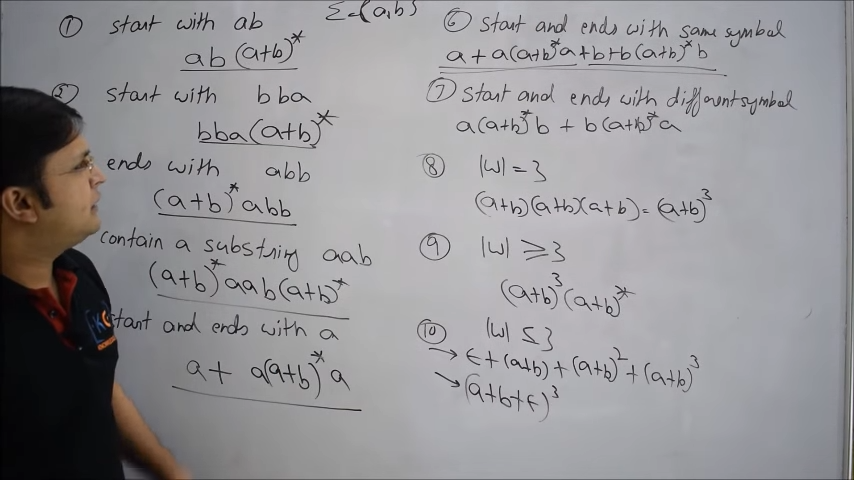 Σ={a,b}
① start with ab
ab(a+b)*
② start with bba
bba(a+b)*
ends with abb
(a+b)*abb
contain a substring aab
(a+b)*aab(a+b)*
start and ends with a
a + a(a+b)*a
⑥ start and ends with same symbol
a + a(a+b)*a + b + b(a+b)*b
⑦ start and ends with different symbol
a(a+b)*b + b(a+b)*a
⑧ |w| = 3
(a+b)(a+b)(a+b) = (a+b)³
⑨ |w| ≥ 3
(a+b)³(a+b)*
⑩ |w| ≤ 3
→ ε + (a+b) + (a+b)² + (a+b)³
→ (a+b+ε)³